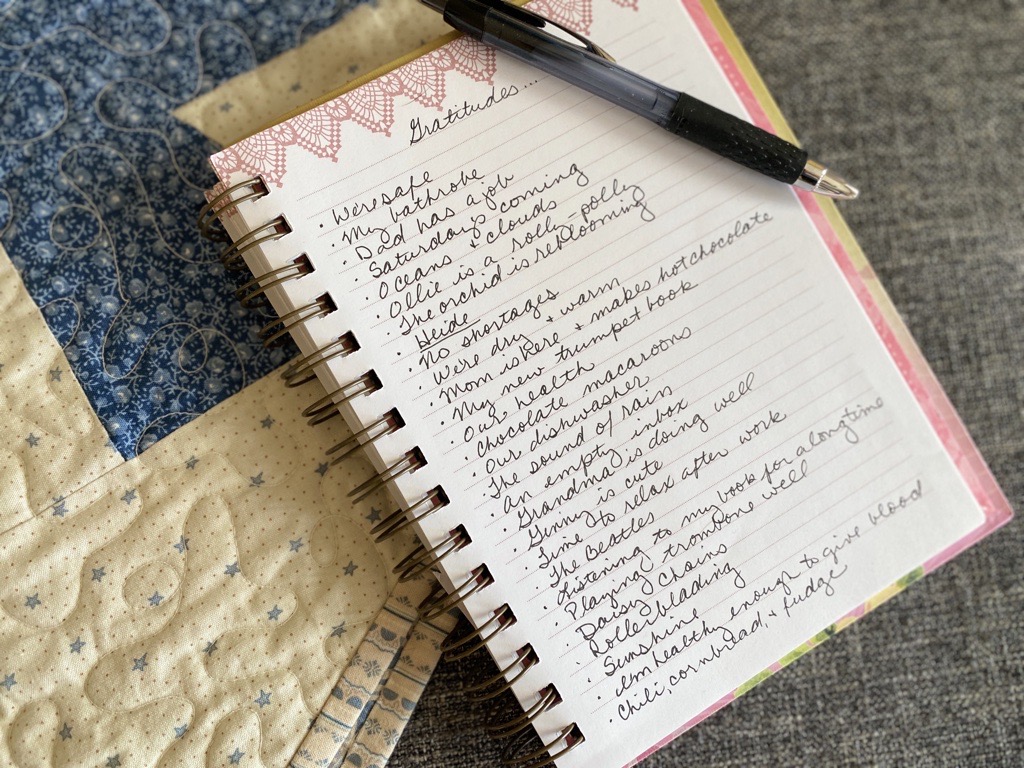 Gratitudes...
· We're safe
· My bathrobe
· Dad has a job
· Saturday's coming
· Oceans + clouds
· Ollie is a rolly-polly
· The orchid is reblooming
· Heide
· No shortages
· We're dry + warm
· Mom is here + makes hot chocolate
· My new trumpet book
· Our health
· Chocolate macaroons
· Our dishwasher
· The sound of rain
· An empty inbox
· Grandma is doing well
· Ginny is cute
· Time to relax after work
· The Beatles
· Listening to my book for a long time
· Playing trombone well
· Daisy Chains
· Rollerblading
· Sunshine
· I'm healthy enough to give blood
· Chili, cornbread, + fudge